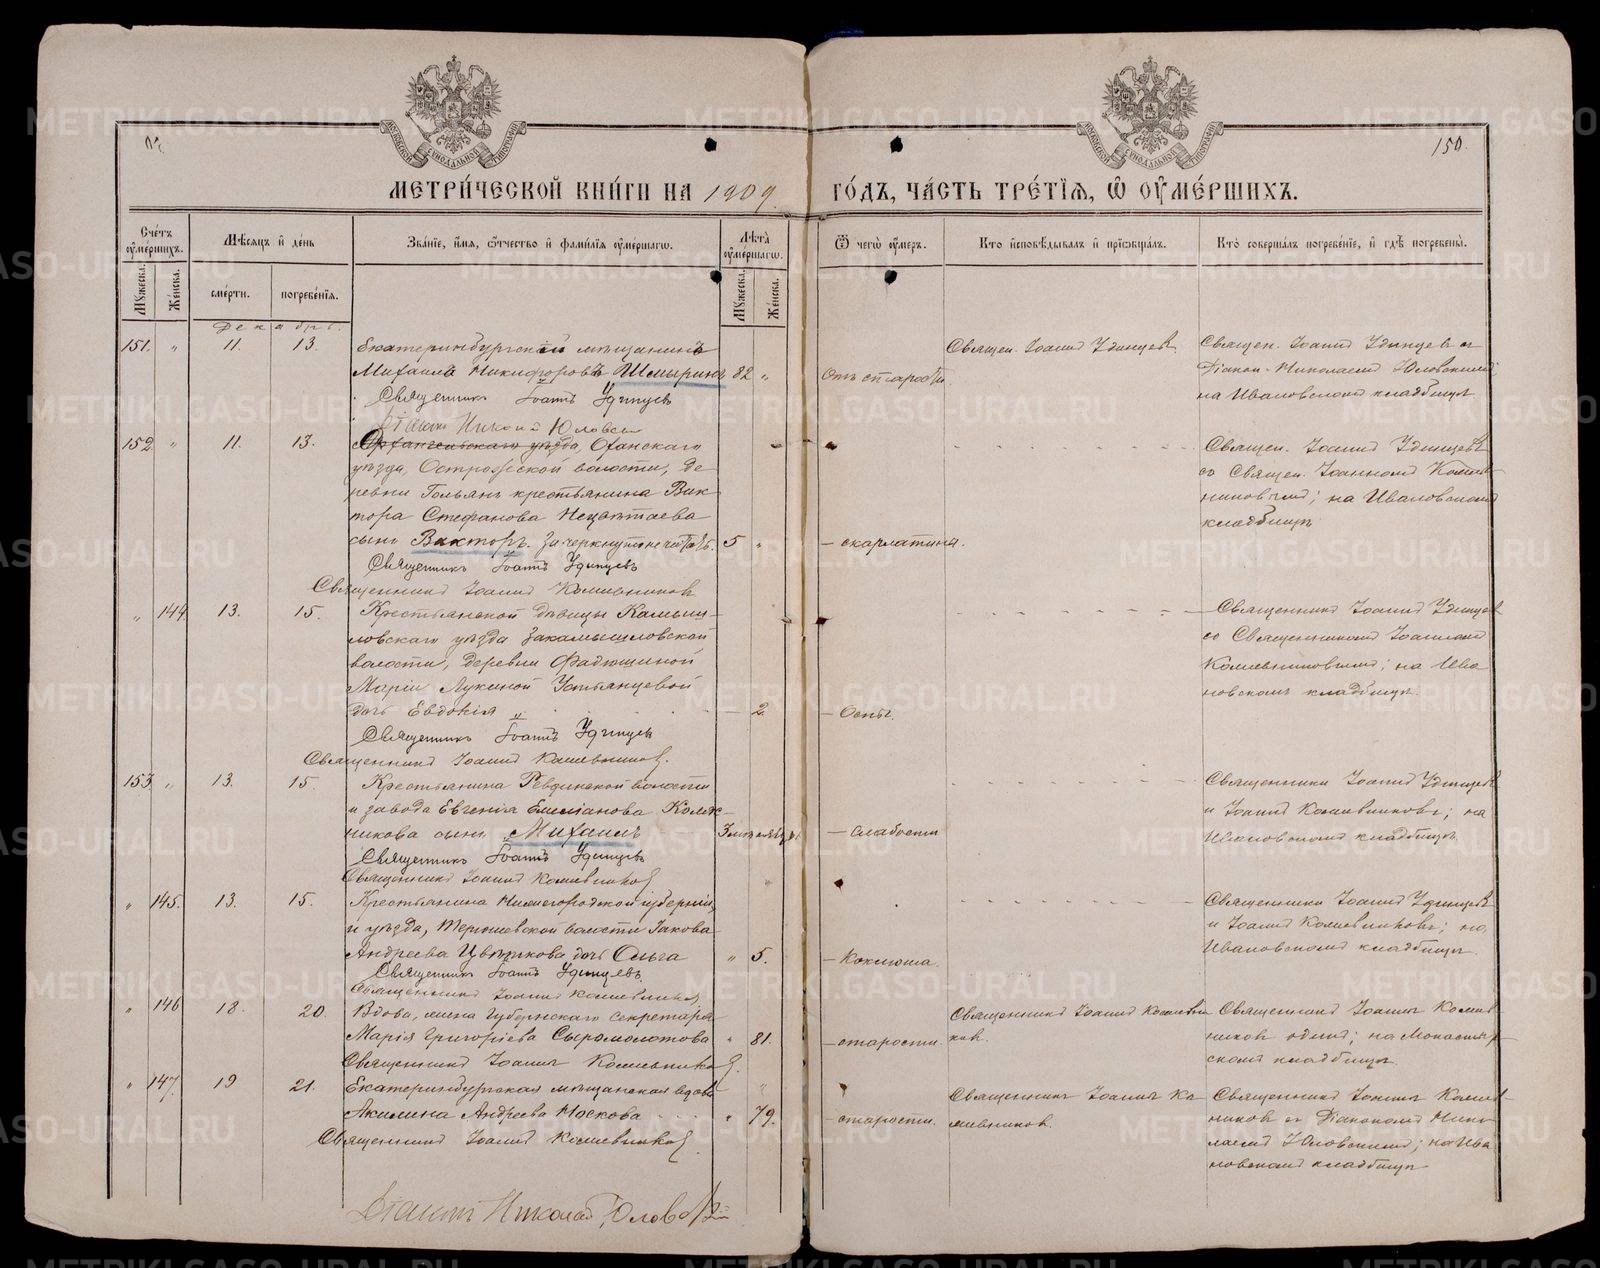 150.
МЕТРИ́ЧЕСКОЙ КНИ́ГИ НА 1909 ГО́ДЪ, ЧА́СТЬ ТРЕ́ТІѦ, Ѡ ОУ҆МЕ́РШИХЪ.
МОСКОВСКОЙ СѴНОДАЛЬНОЙ ТИПОГРАФІИ
МОСКОВСКОЙ СѴНОДАЛЬНОЙ ТИПОГРАФІИ
Сче́тъ оу҆ме́ршихъ.
Мꙋжеска.
Же́нска.
Мѣ́сѧцъ и҆ де́нь
сме́рти.
погребе́нїѧ.
Зва́нїе, и҆́мѧ, ѻ҆́тчество и҆ фами́лїѧ оу҆ме́ршагѡ.
Лѣ́та оу҆ме́ршагѡ.
Мꙋжеска.
Же́нска.
Ѿ чегѡ̀ оу҆́меръ.
Кто̀ и҆сповѣ́дывалъ и҆ приѡбща́лъ.
Кто̀ соверша́лъ погребе́нїе, и҆ гдѣ̀ погребены̀.
Декабрь.
151. " 11. 13. Екатеринбургскій мѣщанинъ
Михаилъ Никифоровъ Шмыринъ 82 "
Священникъ Іоаннъ Удинцевъ
Діаконъ Николай Юловскій
Отъ старости.
Священ. Іоаннъ Удинцевъ
Священ. Іоаннъ Удинцевъ съ
Діакон. Николаемъ Юловскимъ
на Ивановскомъ кладбищѣ
152. " 11. 13. Архангельскаго уѣзда, Оханскаго
уѣзда, Острожской волости, де
ревни Гольянъ крестьянина Вик
тора Стефанова Нецвѣтаева
сынъ Викторъ. Зачеркнутое не читать. 5 "
Священникъ Іоаннъ Удинцевъ
Священникъ Іоаннъ Кожевниковъ
скарлатина.
Священ. Іоаннъ Удинцевъ
со Священ. Іоанномъ Кожев
никовымъ; на Ивановскомъ
кладбищѣ
" 144. 13. 15. Крестьянской дѣвицы Камыш
ловскаго уѣзда Закамышловской
волости, деревни Фадюшиной
Маріи Лукиной Устьянцевой
дочь Евдокія 2.
Священникъ Іоаннъ Удинцевъ
Священникъ Іоаннъ Кожевниковъ.
Оспы.
Священникъ Іоаннъ Удинцевъ
со Священникомъ Іоанномъ
Кожевниковымъ; на Ива
новскомъ кладбищѣ.
153 " 13. 15. Крестьянина Ревдинской волости
и завода Евгенія Емеліанова Коляс
никова сынъ Михаилъ 3
Священникъ Іоаннъ Удинцевъ
Священникъ Іоаннъ Кожевниковъ
слабости
Священники Іоаннъ Удинцевъ
и Іоаннъ Кожевниковъ; на
Ивановскомъ кладбищѣ
" 145. 13. 15. Крестьянина Нижегородской губерніи
и уѣзда, Терюшевской волости Іакова
Андреева Цвѣткова дочь Ольга " 5.
Священникъ Іоаннъ Удинцевъ.
Священникъ Іоаннъ Кожевниковъ
Коклюша.
Священники Іоаннъ Удинцевъ
и Іоаннъ Кожевниковъ; на
Ивановскомъ кладбищѣ.
" 146 18. 20. Вдова, жена Губернскаго секретаря
Марія Григоріева Сыромолотова " 81.
Священникъ Іоаннъ Кожевниковъ.
старости.
Священникъ Іоаннъ Кожевни
ковъ.
Священникъ Іоаннъ Кожев
никовъ одинъ; на Монастыр
скомъ кладбищѣ.
" 147. 19 21. Екатеринбургская мѣщанская вдова
Акилина Андреева Носкова " 79.
Священникъ Іоаннъ Кожевниковъ.
старости.
Священникъ Іоаннъ Ко
жевниковъ.
Священникъ Іоаннъ Кожев
никовъ съ Діакономъ Нико
лаемъ Юловскимъ; на Ива
новскомъ кладбищѣ
Діаконъ Николай Юловскій
METRIKI.GASO-URAL.RU